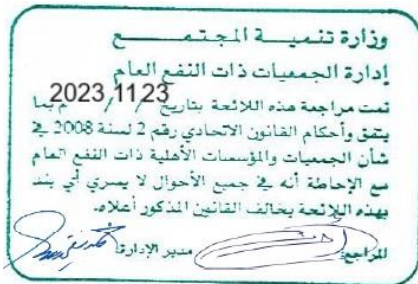 وزارة تنميـــة المجتمـــــــع
إدارة الجمعيات ذات النفع العام
تمت مراجعة هذه اللائحة بتاريخ 2023 / 11 / 23 م بما
يتفق وأحكام القانون الاتحادي رقم 2 لسنة 2008 في
شأن الجمعيات والمؤسسات الأهلية ذات النفع العام
مع الإحاطة أنه في جميع الأحوال لا يسري أي بند
بهذه اللائحة يخالف القانين المذكور أعلاه.
المراجع: مدير الإدارة: